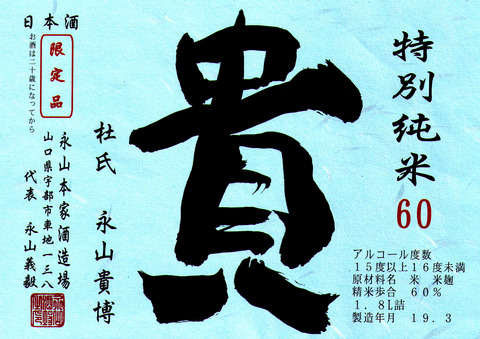 日本酒
お酒は二十歳になってから
限定品
貴
特別純米
60
杜氏 永山貴博
永山本家酒造場
山口県宇部市車地一三八
代表 永山義毅
アルコール度数
15度以上16度未満
原材料名 米 米麹
精米歩合 60%
1.8L詰
製造年月 19.3